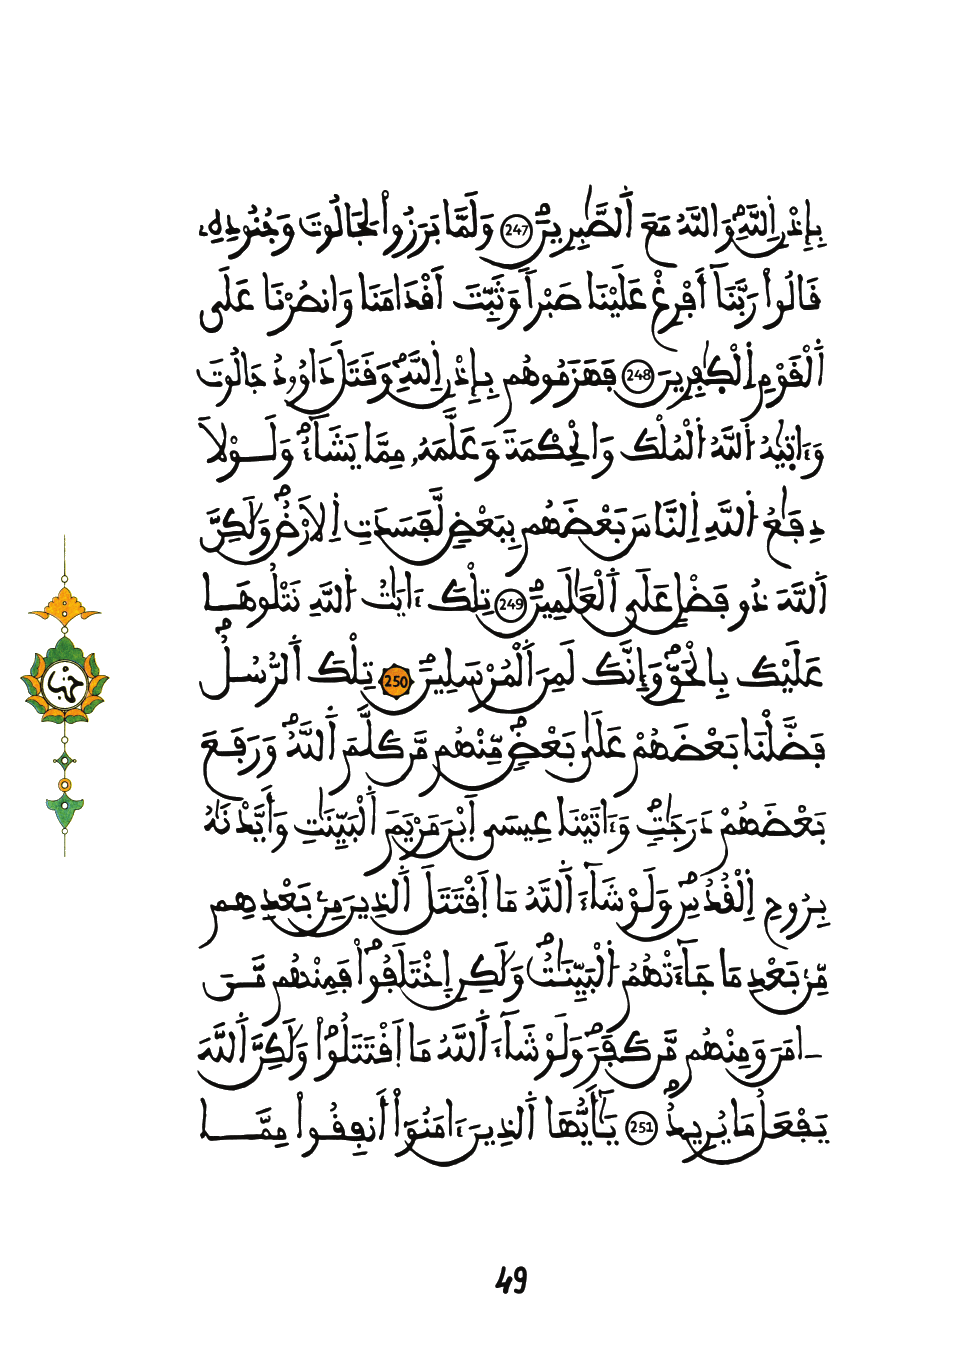 بِإِذْنِ اِ۬للَّهِۖ وَاللَّهُ مَعَ اَ۬لصَّٰبِرِينَۖ 247 وَلَمَّا بَرَزُواْ لِجَالُوتَ وَجُنُودِهِۦ
قَالُواْ رَبَّنَآ أَفْرِغْ عَلَيْنَا صَبْراً وَثَبِّتَ اَقْدَامَنَا وَانصُرْنَا عَلَى
اَ۬لْقَوْمِ اِ۬لْكٰفِرِينَۖ 248 فَهَزَمُوهُم بِإِذْنِ اِ۬للَّهِۖ وَقَتَلَ دَاوُۥدُ جَالُوتَ
وَءَاتٰيٰهُ اُ۬للَّهُ اُ۬لْمُلْكَ وَالْحِكْمَةَ وَعَلَّمَهُۥ مِمَّا يَشَآءُۖ وَلَوْلَا
دِفَٰعُ اُ۬للَّهِ اِ۬لنَّاسَ بَعْضَهُم بِبَعْضٖ لَّفَسَدَتِ اِ۬لَارْضُۖ وَلَٰكِنَّ
اَ۬للَّهَ ذُو فَضْلٍ عَلَى اَ۬لْعَٰلَمِينَۖ 249 تِلْكَ ءَايَٰتُ اُ۬للَّهِ نَتْلُوهَا
عَلَيْكَ بِالْحَقِّۖ وَإِنَّكَ لَمِنَ اَ۬لْمُرْسَلِينَۖ 250 تِلْكَ اَ۬لرُّسُلُۖ
فَضَّلْنَا بَعْضَهُمْ عَلَىٰ بَعْضٖۖ مِّنْهُم مَّن كَلَّمَ اَ۬للَّهُۖ وَرَفَعَ
بَعْضَهُمْ دَرَجَٰتٖۖ وَءَاتَيْنَا عِيسَى اَ۪بْنَ مَرْيَمَ اَ۬لْبَيِّنَٰتِ وَأَيَّدْنَٰهُ
بِرُوحِ اِ۬لْقُدُسِۖ وَلَوْ شَآءَ اَ۬للَّهُ مَا اَ۪قْتَتَلَ اَ۬لذِينَ مِنۢ بَعْدِهِم
مِّنۢ بَعْدِ مَا جَآءَتْهُمُ اُ۬لْبَيِّنَٰتُۖ وَلَٰكِنِ اِ۪خْتَلَفُواْۖ فَمِنْهُم مَّنَ
ـامَنَ وَمِنْهُم مَّن كَفَرَۖ وَلَوْ شَآءَ اَ۬للَّهُ مَا اَ۪قْتَتَلُواْۖ وَلَٰكِنَّ اَ۬للَّهَ
يَفْعَلُ مَا يُرِيدُۖ 251 يَٰٓأَيُّهَا اَ۬لذِينَ ءَامَنُوٓاْ أَنفِقُواْ مِمَّا
حزب
49